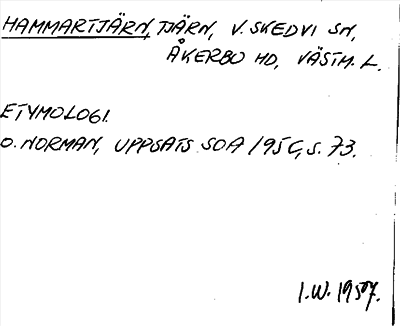 HAMMARTJÄRN, TJÄRN, V. SKEDVI SN,
ÅKERBO HD, VÄSTM. L.
ETYMOLOGI.
O. NORMAN, UPPSATS SOA 1950, S. 73.
I.W. 1957.